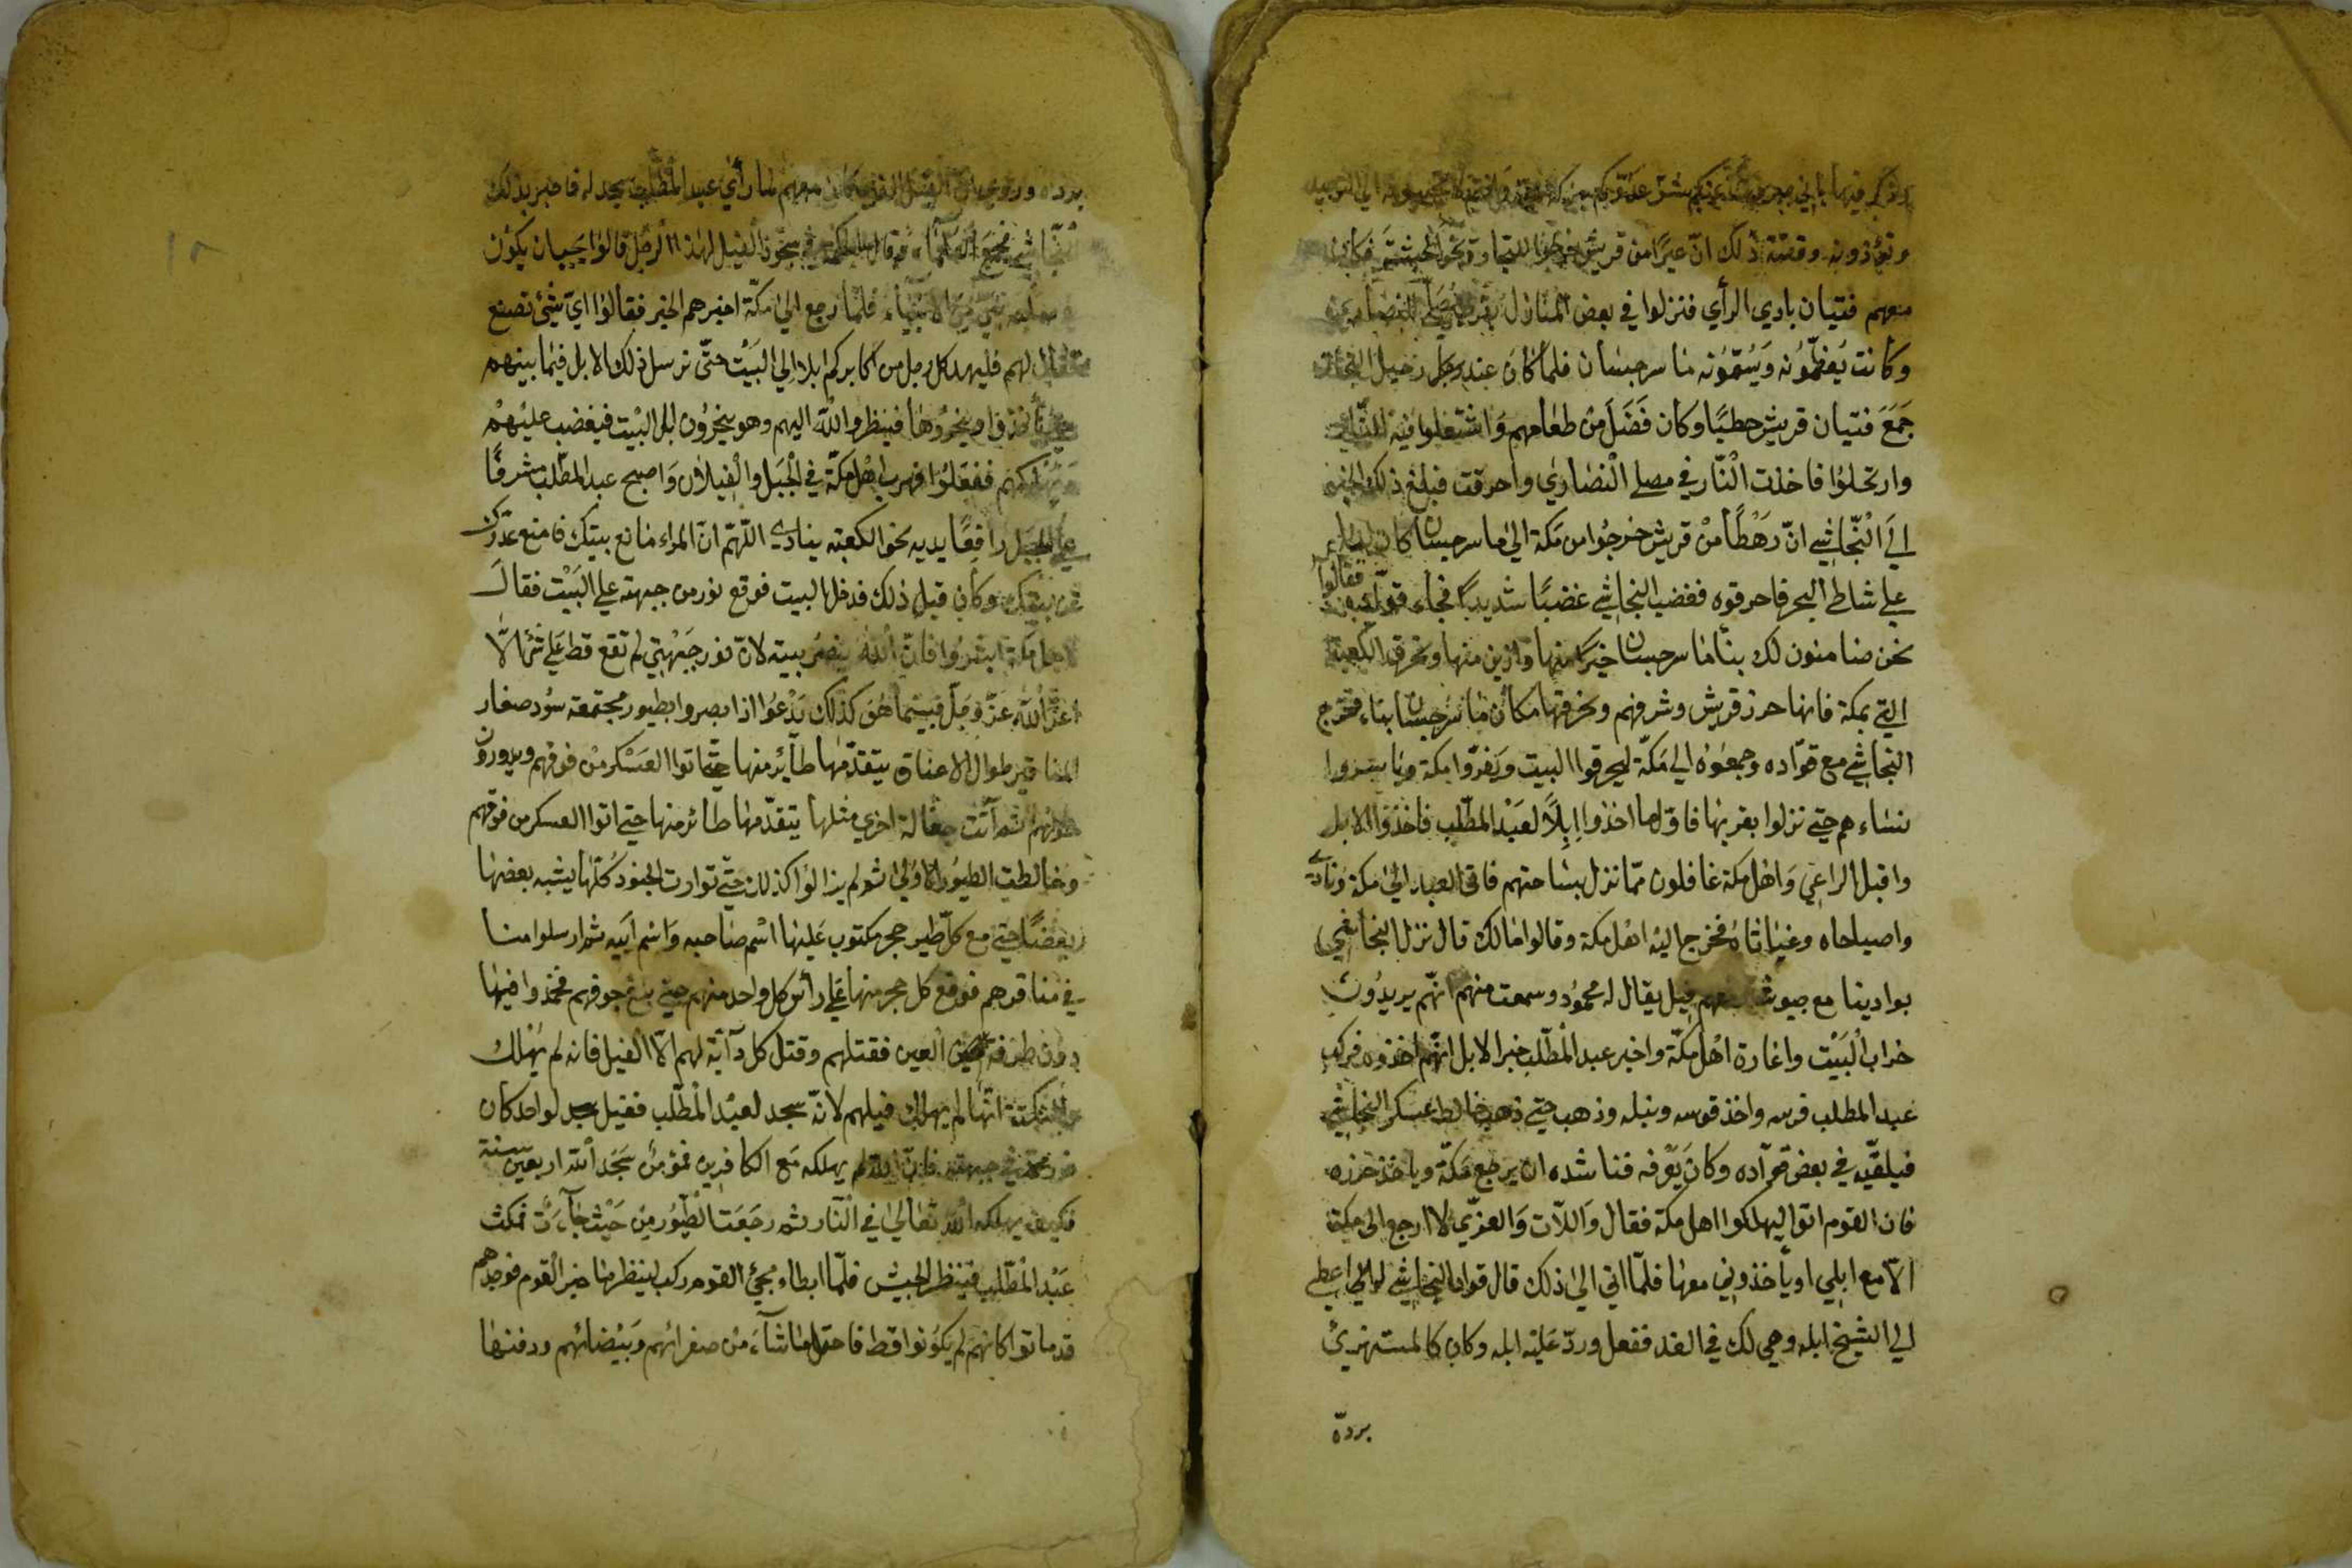 وتعذونه وقصّة ذلك انّ عيرًا من قريش خرجوا للتجارة نحو الحبشة فكان
معهم فتيان بادي الرأي فنزلوا في بعض المنازل بقرب مصلّى للنصارى
وكانت يُعظّمونه وَيُسَمّونه ماسرجسان فلمّا كان عند رحيل
جَمَعَ فتيان قريش حطبًا وكان فَضَلَ مِنْ طعامهم وَاشتغلوا فيه النّار
وارتحلوا فاخذت الْنّار في مصلى الْنصارى واحرقت فبلغ ذلك الخبر
الى الْنّجاشي انّ رَهْطًا مِنْ قريش خرجُوا من مكة الى ماسرجسان كان
على شاطئ البحر فاحرقوه فغضب النجاشي غضبًا شديدًا فجاء قوّاده فقالوا
نحن ضامنون لك بنا ماسرجسان خيرًا منها وازين منها ونحرق الكعبة
التي بمكة فانها حرز قريش وشرفهم ونحرقها مكان ماسرجسان بناء فخرج
النجاشي مع قوّاده وجموعه الى مكّة ليحرقوا البيت وَيغزّوا مكة
نساءهم حتى نزلوا بقربها فاوّل ما اخذوا اِبِلًا لعَبْد المطّلب فاخذوا الابل
واقبل الراعي وَاهل مكة غافلون ممّا نزل بساحتهم فاتى العبد الى مكة ونادى
واصباحاه وغياثاهُ فخرج اليه اهل مكة وقالوا مالك قال نزل النجاشي
بوادينا مع جيوشه معهم فيل يقال له محموُد وسمعت منهم انّهم يريدُون
خراب الْبَيْت واغارة اهْل مكّة واخبر عبد المُطّلب خبر الابل انّهم اخذوه فركب
عبد المطلب فرسه واخذ قوسه ونبله وذهب حتى خالط عسكر النجاشي
فيلقّيه في بعض قوّاده وكان يَعْرفه فناشده ان يرجع مكّة وياخذ حذره
فان القوم اتوا ليهلكوا اهل مكة فقال وَاللاّت وَالعزّى لا ارجع الى مكة
الاّ مع ابلي او ياخذوني معها فلمّا اتى الى ذلك قال قواد النجاشي اعطى
الى الشيخ ابله وهي لك في الغد ففعل وردّ عَليْه ابله وكان كالمستهزئ
بردة
برده وروي انّ الفيل الذي كان معهم لما رأى عبد الْمُطّلب سجد له فاخبر بذلك
النّجاشي فجمع العلماء وقال سجود الفيل لهذا الرّجل قالوا يجب ان يكوْن
من الانبياء فلمّا رجع الى مكّة اخبرهم الخبر فقالوا ايّ شيْء تصنع
فقال لهم فليهد كل رجل من اكابركم ابلا الى البَيْت حتّى نرسل ذلك الابل فيما بينهم
فينظر اللّه اليهم وهو ينحرُون ابل البْيت فيغضب عليْهمْ
ففعَلوُا فهرب اهْل مكّة في الْجَبَل وَاصبح عبد المطّلب مشرفًا
على الجبل رافعًا يديه نحو الكعبه ينادي اللّهمّ انّ المراء مانع بيتك فامنع عدّوك
عن بيتك وكان قبل ذلك فدخل البيت فوقع نور من جبهته على البَيْت فقال
لاهل مكة ابشروُا فان اللّه ينصُر بيته لانّ نور جَبْهَتي لم تقع قط على شئ الّا
اعزّ اللّه عزّ وَجلّ فبينما هُم كذلك يَدْعُوا اذا بصروا بطيور مجتمعة سُود صغار
المناقير طوال الاعناق يتقدّمها طآئر منها حتى اتوا العَسْكر مِنْ فوقهم ويدورون
حولهم ثم اتت اخرى مثلها يتقدّمها طائر منها حتى اتوا العسكر من فوقهم
وخالطت الطيُور الاولى ثم لم يزالوا كذلك حتّى توارت الجنوُد كُلّها يشبه بعضها
بعضًا حتى مع كلّ طير حجر مكتوب عَليْها اسْم صاحبه وَاسم اَبيه ثم ارسلوا ما
في مناقرهم فوقع كل حجر منها على رأس كل واحد منهم حتى بلغ جوفهم فخمدوا فيها
دون طرفة العين فقتلهم وقتل كل دآبّة لهم الاّ الْفيل فانه لم يُهْلك
والنكتة انّها لم يهلك فيلهم لانّه سجد لعبْد الْمطّلب فقيل سجد لواحد كان
نور محمد في جبهته فانّ اللّه لم يهلكه مَع الكافرين فمؤمنُ سَجَد اللّه اربعين سنة
فكيف يهلكه اللّه تعالى في الْنّار ثم رجَعَت الْطيُور مِن حَيْث جآءَتْ فمكث
عَبْد المُطّلب فينظر الجيش فلمّا ابطاء مجئ القوم ركب لينظر ما خبر الْقوم فوجدهم
قد ماتوا كانهم لم يكُونوا قط فاحتمل ما شآءَ مِنْ صفرائهم وَبيْضائهم ودفنها